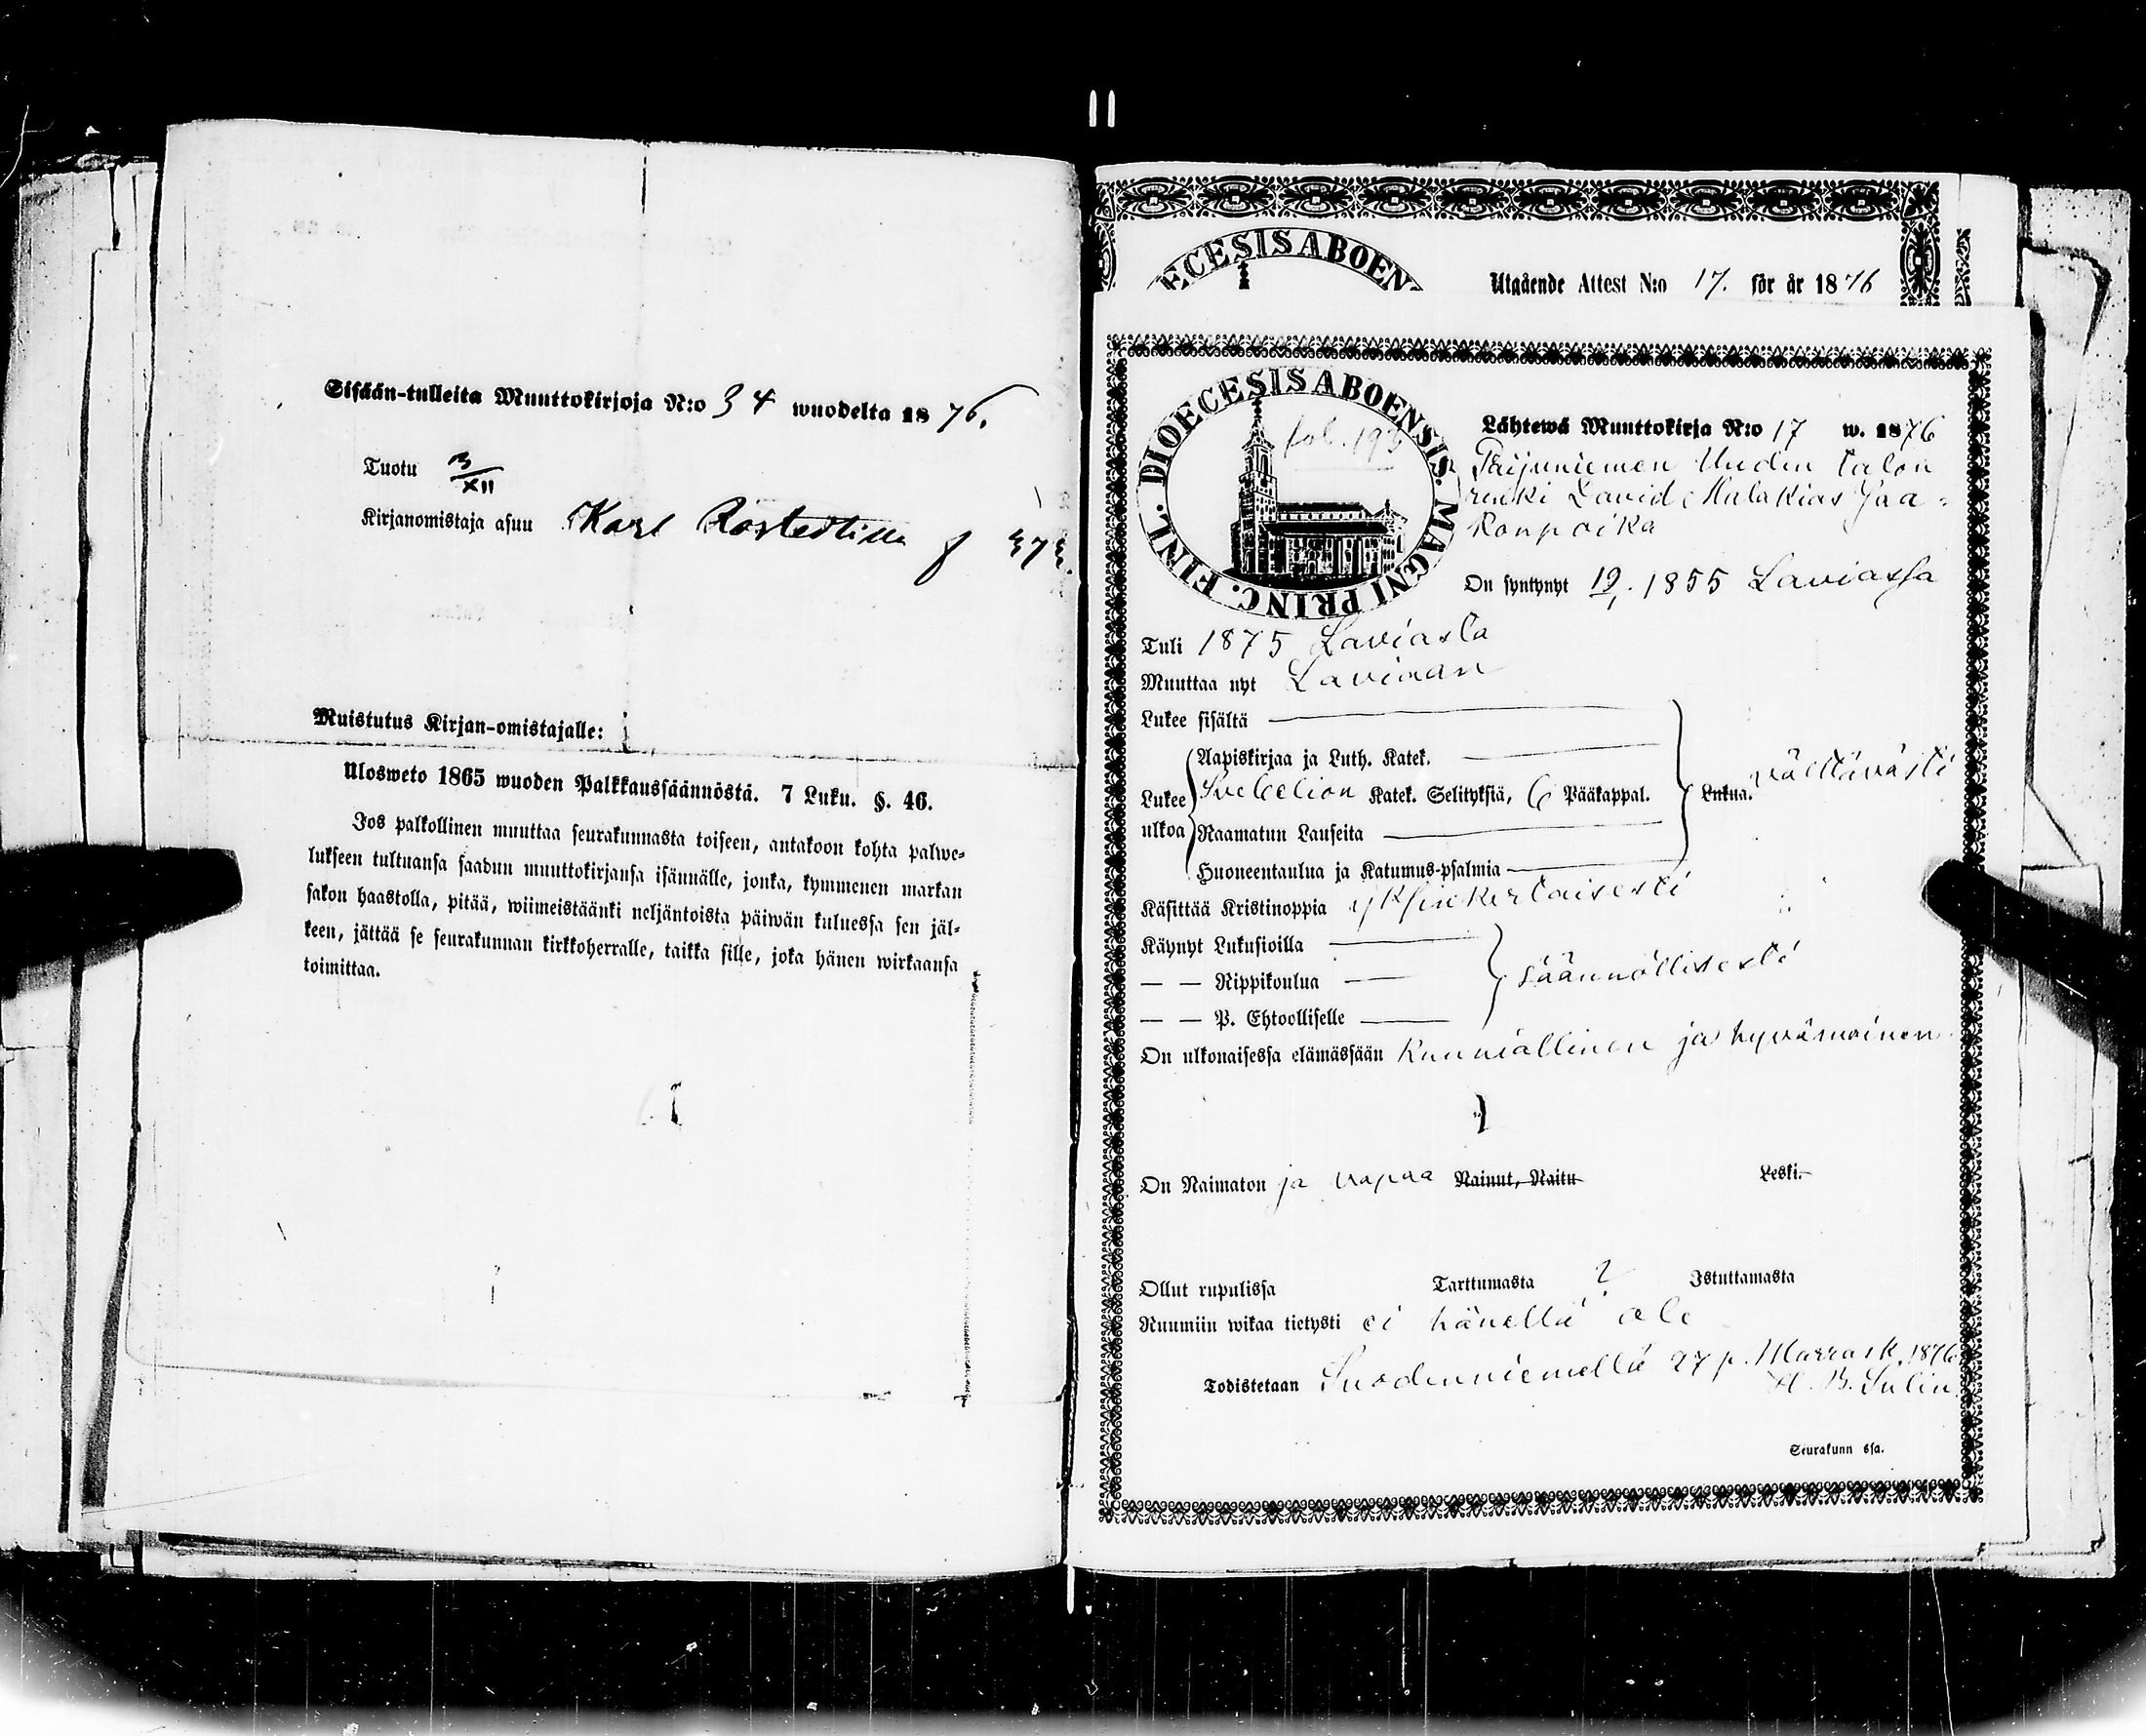 Sisään-tulleita Muuttokirjoja N:o 34 wuodelta 1876.
Tuotu 3/XII
Kirjanomistaja asuu Karl Rostedtilla f 373.
Muistutus Kirjan-omistajalle:
Ulosweto 1865 wuoden Palkkaussäännöstä. 7 Luku. §. 46.
Jos palkollinen muuttaa seurakunnasta toiseen, antakoon kohta palwe-
lukseen tultuansa saadun muuttokirjansa isännälle, jonka, kymmenen markan
sakon haastolla, pitää, wiimeistäänki neljäntoista päiwän kuluessa sen jäl-
keen, jättää se seurakunnan kirkkoherralle, taikka sille, joka hänen wirkaansa
toimittaa.
ECESIS ABOEN
Utgående Attest N:o 17. för år 1876
DIOECESIS ABOENSIS. MAGNI PRINC. FINL.
fol. 193
Lähtewä Muuttokirja N:o 17 w. 1876
Uuden talon
renki David Malakias Jaa-
konpoika
On syntynyt 19/1. 1855 Laviassa
Tuli 1875 Laviasta
Muuttaa nyt Laviaan
Lukee sisältä
Aapiskirjaa ja Luth. Katek.
Lukee Svebelion Katek. Selityksiä, 6 Pääkappal. Lukua. välttävästi
ulkoa Raamatun Lauseita
Huoneentaulua ja Katumus-psalmia
Käsittää Kristinoppia yksinkertaisesti
Käynyt Lukusioilla
— — Rippikoulua säännöllisesti
— — P. Ehtoolliselle
On ulkonaisessa elämässään kunniallinen ja hyvämainen
On Naimaton ja vapaa Nainut, Naitu Leski.
Ollut rupulissa Tarttumasta ? Istuttamasta
Ruumiin wikaa tietysti ei hänellä ole
Todistetaan Suodenniemellä 27 p. Marrask. 1876
Seurakunn ssa.